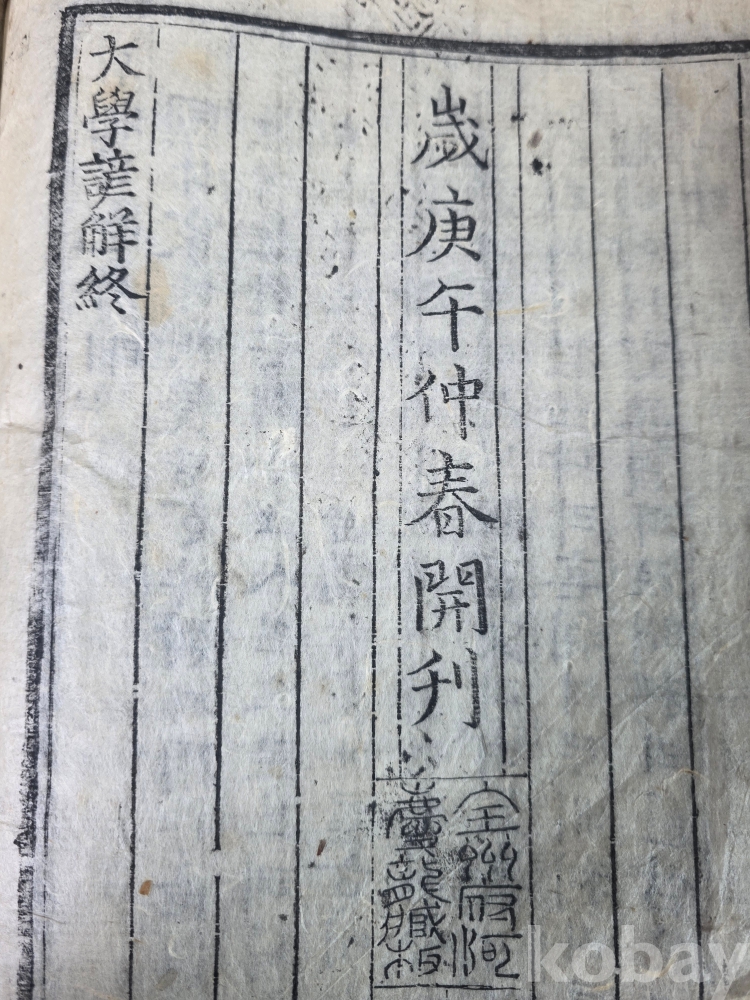 歲庚午仲春開刊
全州府河
慶龍藏板
大學諺解終
kobay